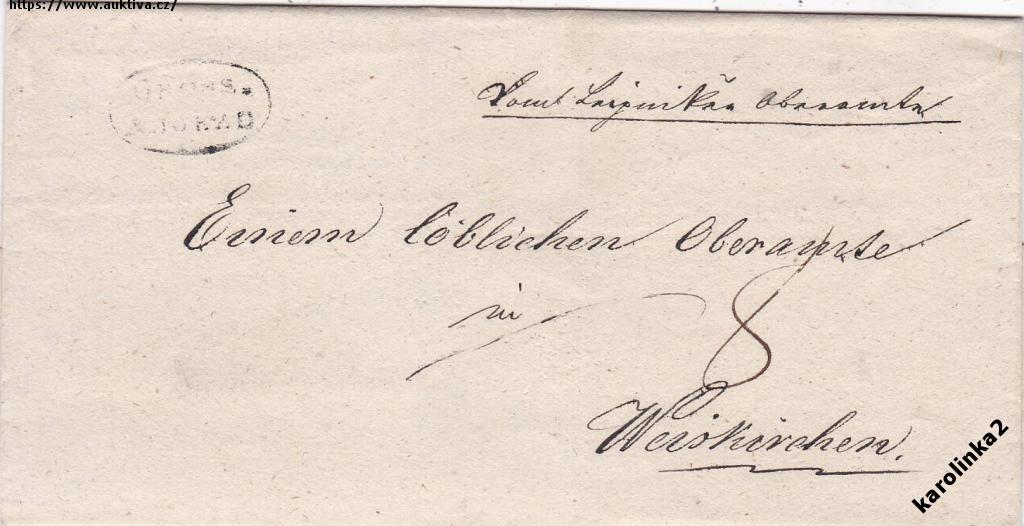 https://www.auktiva.cz/
Vom Leipniker Oberamte
GROSS=
Einem löblichen Oberamte
in
8
Weiskirchen.
karolinka2